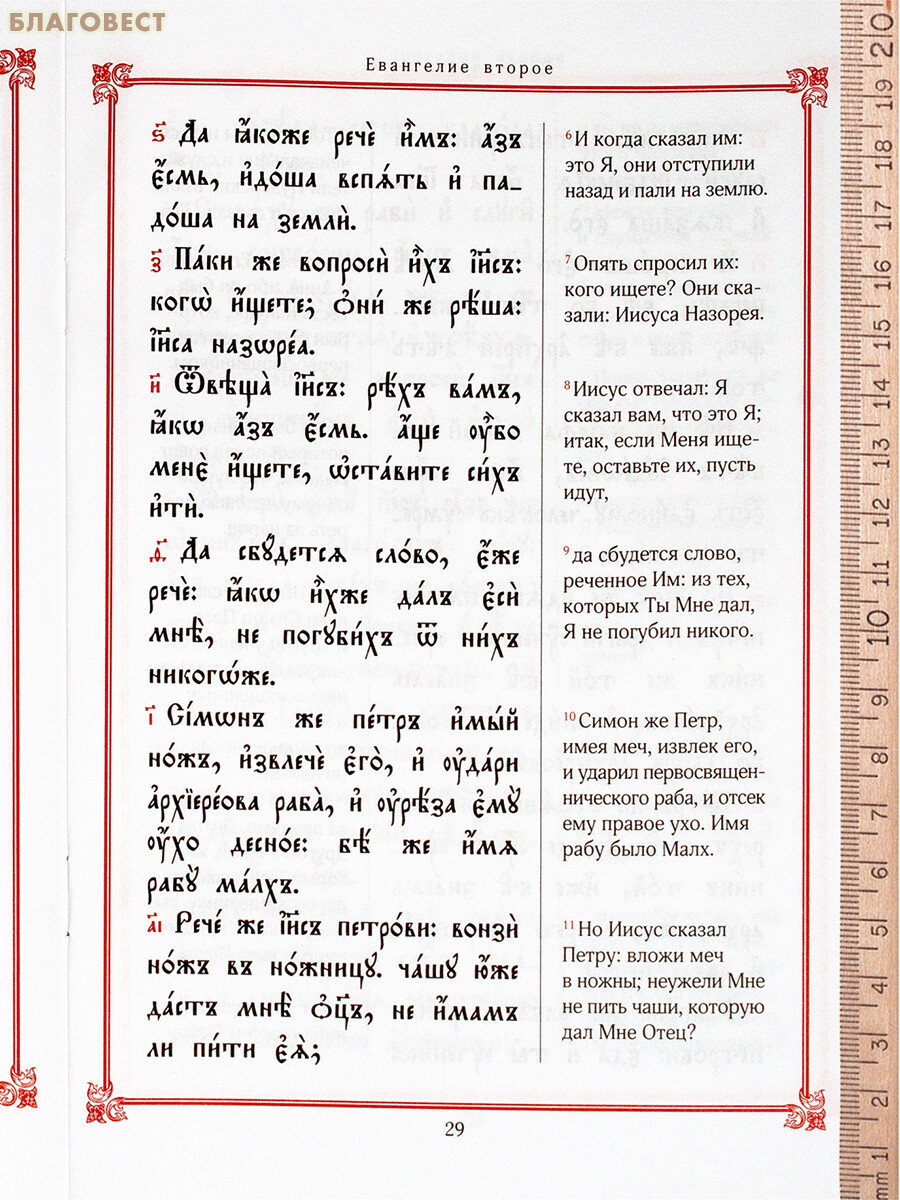 БЛАГОВЕСТ
Евангелие второе
ѕ҃ Да ꙗ҆́коже речѐ и҆̀мъ: а҆́зъ
є҆́смь, и҆до́ша вспѧ́ть и҆ па-
до́ша на землѝ.
з҃ Па́ки же вопросѝ и҆̀хъ і҆и҃съ:
когѡ̀ и҆́щете; ѻ҆ни́ же рѣ́ша:
і҆и҃са назѡре́а.
и҃ Ѿвѣща̀ і҆и҃съ: рѣ́хъ ва́мъ,
ꙗ҆́кѡ а҆́зъ є҆́смь. а҆́ще ᲂу҆̀бо
менє̀ и҆́щете, ѡ҆ста́вите си́хъ
и҆тѝ.
ѳ҃ Да сбꙋ́детсѧ сло́во, є҆́же
речѐ: ꙗ҆́кѡ и҆̀хже да́лъ є҆сѝ
мнѣ̀, не погꙋби́хъ ѿ ни́хъ
никогѡ́же.
і҃ Сі́мѡнъ же пе́тръ и҆мы́й
но́жъ, и҆звлечѐ є҆го̀, и҆ ᲂу҆да́ри
а҆рхїере́ова раба̀, и҆ ᲂу҆рѣ́за є҆мꙋ̀
ᲂу҆́хо десно́е: бѣ́ же и҆́мѧ
рабꙋ̀ ма́лхъ.
а҃і Рече́ же і҆и҃съ петро́ви: вонзѝ
но́жъ въ но́жницꙋ. ча́шꙋ ю҆́же
дастъ мнѣ̀ ѻ҆ц҃ъ, не и҆́мамъ
ли пи́ти є҆ѧ̀;
6 И когда сказал им:
это Я, они отступили
назад и пали на землю.
7 Опять спросил их:
кого ищете? Они ска-
зали: Иисуса Назорея.
8 Иисус отвечал: Я
сказал вам, что это Я;
итак, если Меня ище-
те, оставьте их, пусть
идут,
9 да сбудется слово,
реченное Им: из тех,
которых Ты Мне дал,
Я не погубил никого.
10 Симон же Петр,
имея меч, извлек его,
и ударил первосвящен-
нического раба, и отсек
ему правое ухо. Имя
рабу было Малх.
11 Но Иисус сказал
Петру: вложи меч
в ножны; неужели Мне
не пить чаши, которую
дал Мне Отец?
29
20
19
18
17
16
15
14
13
12
11
10
9
8
7
6
5
4
3
2
1
mm